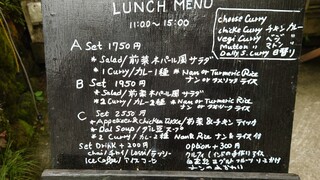 LUNCH MENU
11:00~15:00
choose Curry
chicke Curry チキンカレー
vegi Curry ベジ 〃
Mutton 〃 マトン 〃
Daily S. Curry 日替り
A Set 1750円
* Salad/前菜 ネパール風 サラダ
* 1 Curry/カレー1種 * Nan or Turmeric Rice
ナン or ターメリックライス
B Set 1950円
* Salad/前菜 ネパール風 サラダ
* 2 Curry/カレー2種 * Nan or Turmeric Rice
ナン or ターメリック ライス
C Set 2550円
* Appetizer & Chicken Tikka/前菜 & チキン ティッカ
* Dal Soup/ダル豆スープ
* 2 Curry/カレー2種 Nan & Rice ナン & ライス付
Set Drink +200円
chai/チャイ/Lassi/ラッシー
Ice Coffee/アイスコーヒー
Option +300円
クルフィ/インドの手作りアイス